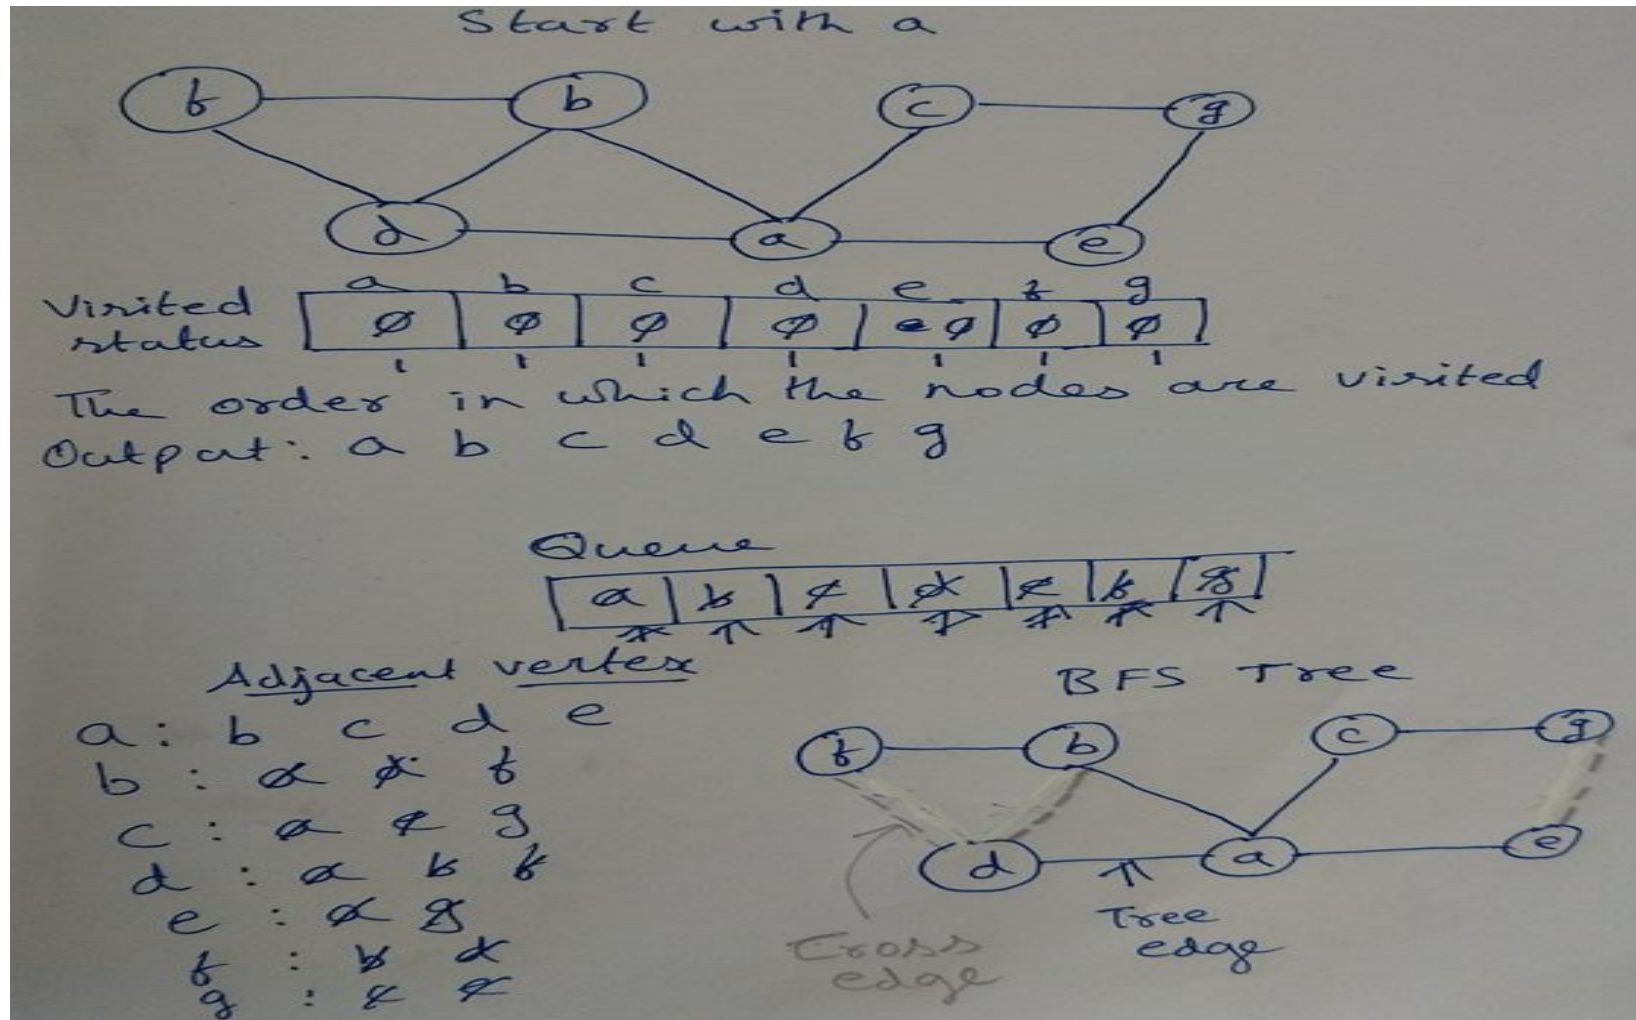 Start with a
f b c g
d a e
a b c d e f g
Visited
status 0 0 0 0 0 0 0
1 1 1 1 1 1 1
The order in which the nodes are visited
Output: a b c d e f g
Queue
a b c d e f g
Adjacent vertex
a: b c d e
b : a d f
c : a e g
d : a b f
e : a g
f : b d
g : c e
BFS Tree
f b c g
d a e
Tree
edge
Cross
edge